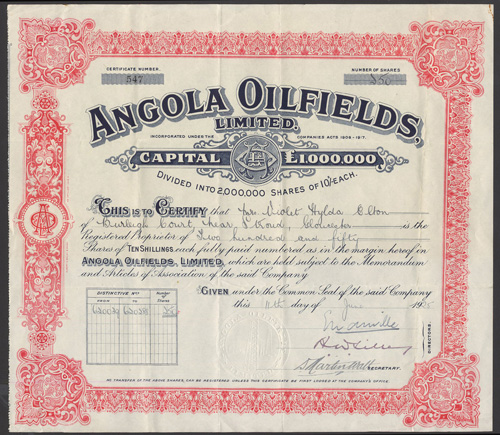 CERTIFICATE NUMBER.
547
NUMBER OF SHARES
ANGOLA OILFIELDS,
LIMITED.
INCORPORATED UNDER THE COMPANIES ACTS 1908-1917.
CAPITAL £1,000,000
DIVIDED INTO 2,000,000 SHARES OF 10/- EACH.
THIS IS TO CERTIFY that Mrs Violet Hylda Elton
of Burleigh Court, near Stroud, is the
Registered Proprietor of Two hundred and fifty
Shares of TEN SHILLINGS each fully paid numbered as in the margin hereof in
ANGOLA OILFIELDS, LIMITED, which are held subject to the Memorandum
and Articles of Association of the said Company.
GIVEN under the Common Seal of the said Company
this 11th day of June 1925
DISTINCTIVE Nos
Number of Shares
FROM TO
DIRECTORS.
SECRETARY.
NO TRANSFER OF THE ABOVE SHARES, CAN BE REGISTERED UNLESS THIS CERTIFICATE BE FIRST LODGED AT THE COMPANY'S OFFICE.